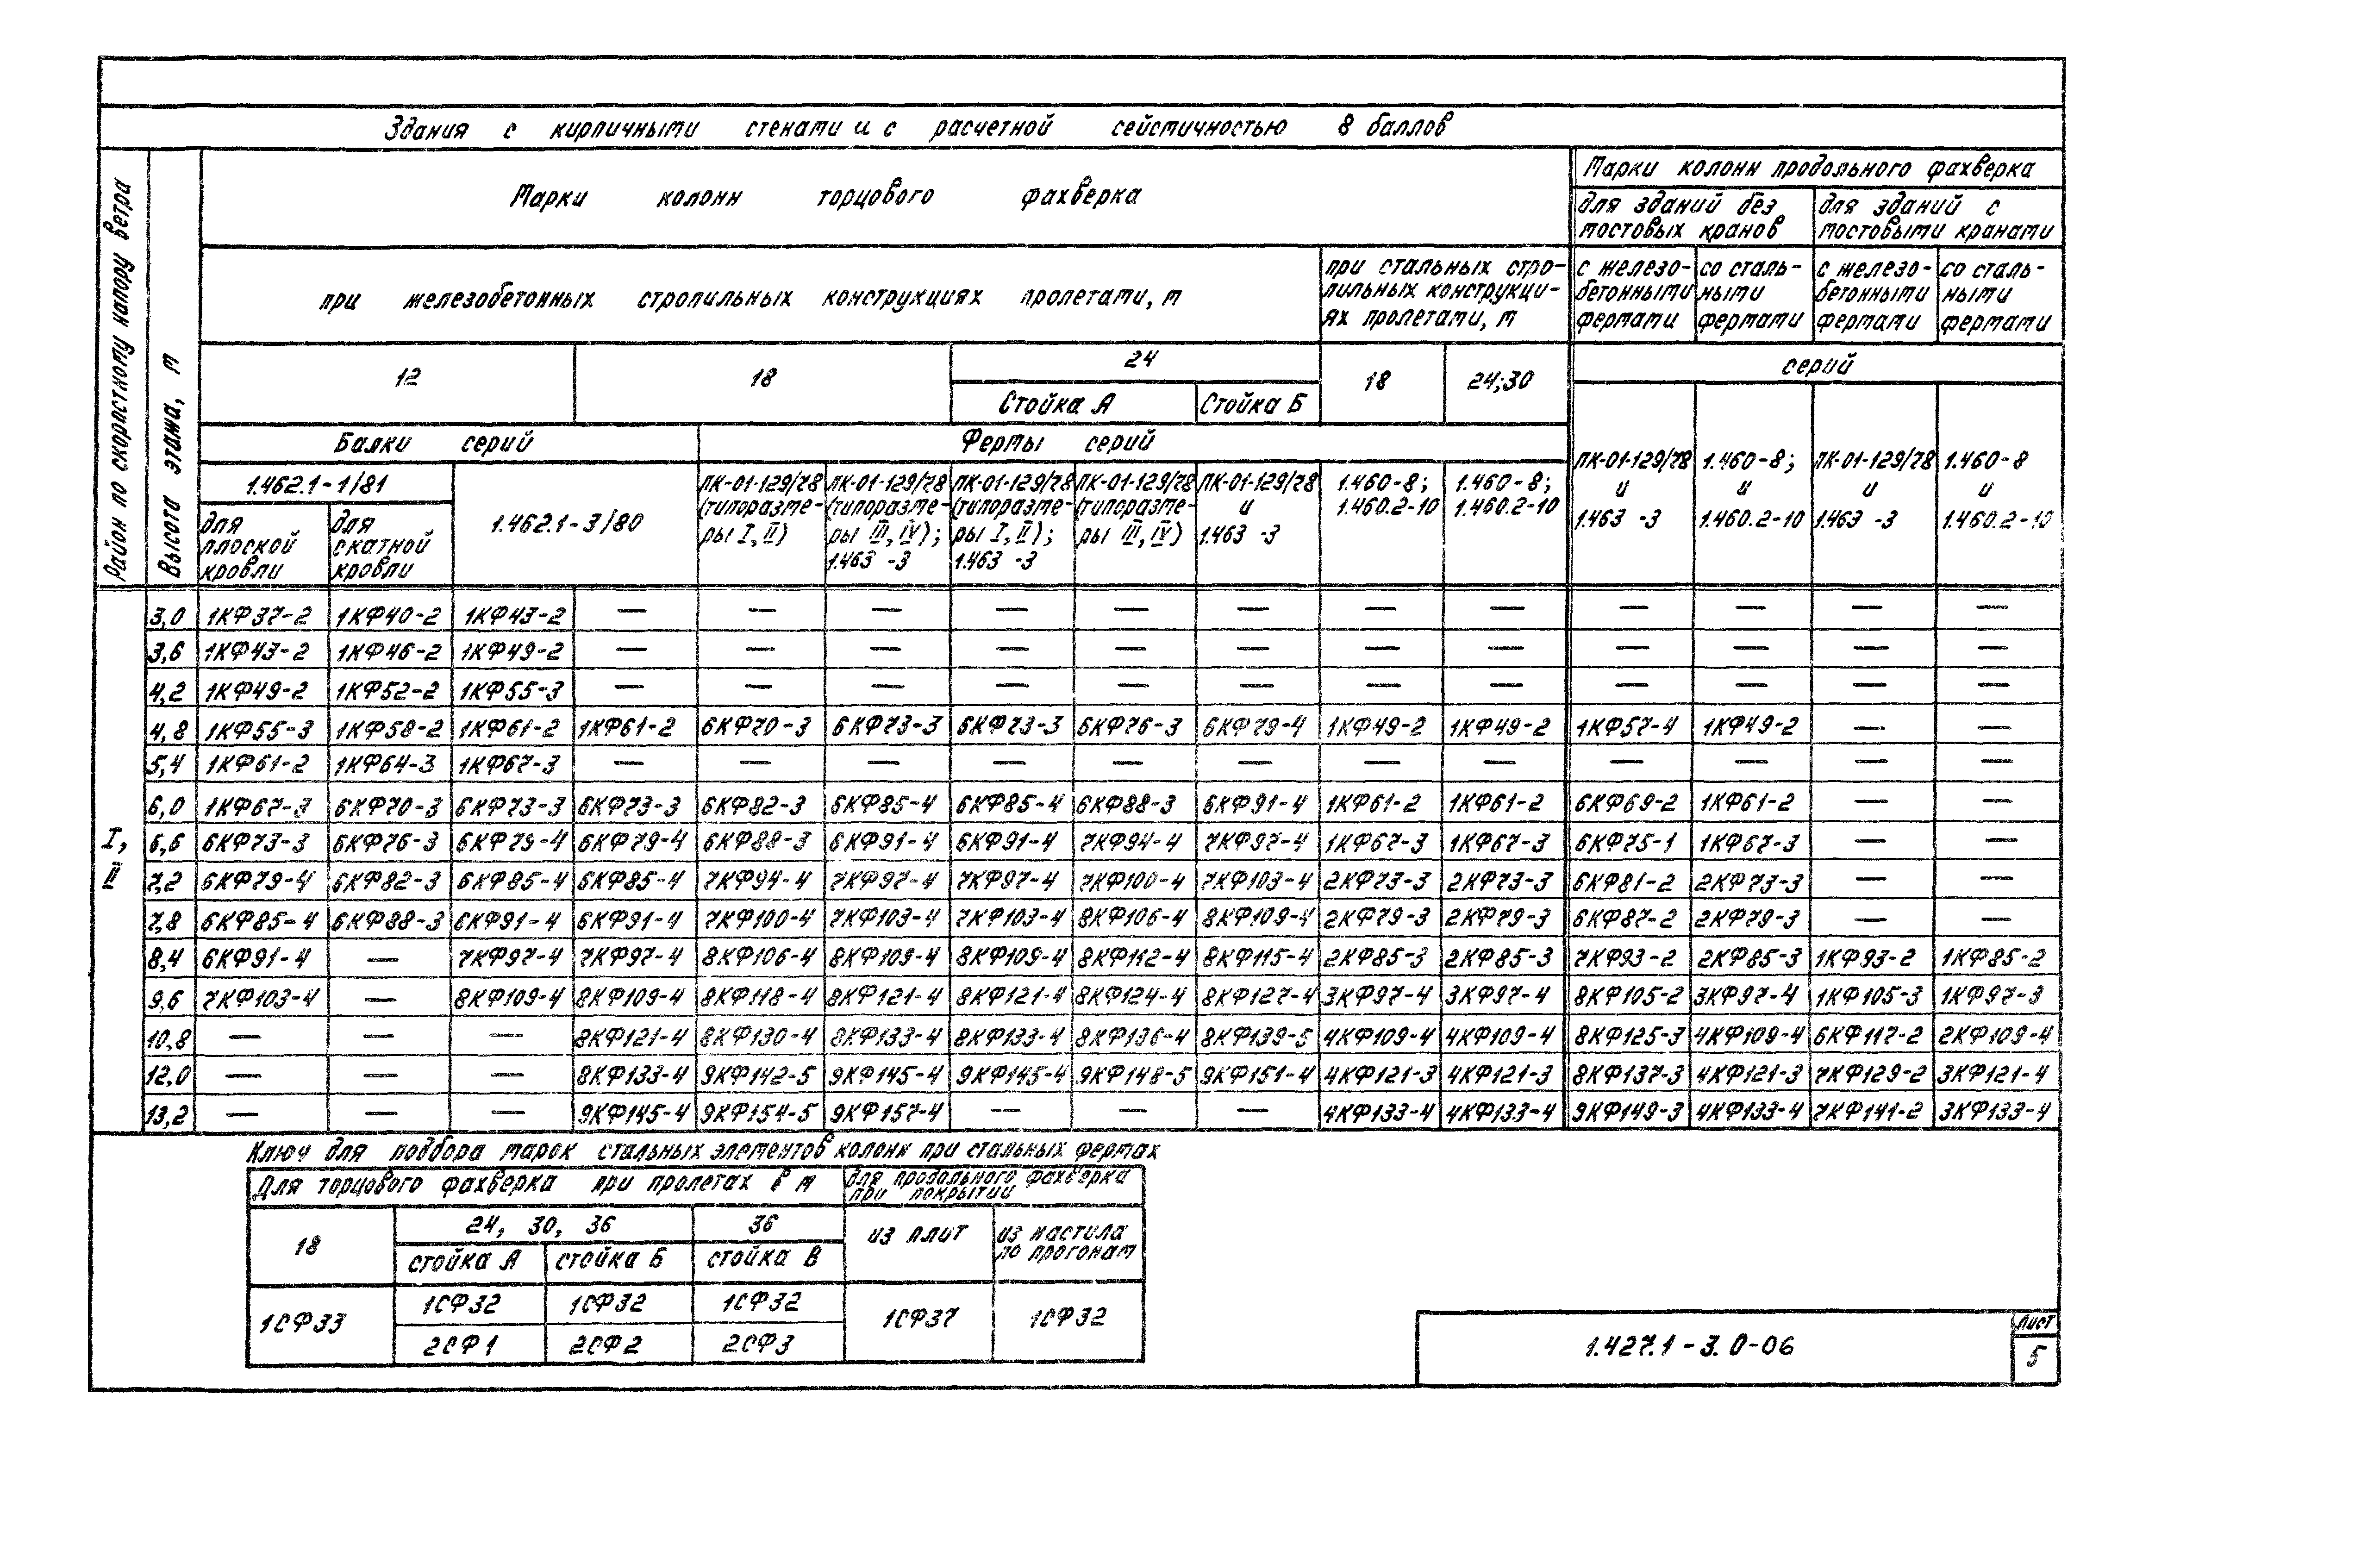 Здания с кирпичными стенами и с расчетной сейсмичностью 8 баллов
Район по скоростному напору ветра
Высота этажа, м
Марки колонн торцового фахверка
Марки колонн продольного фахверка
для зданий без мостовых кранов
для зданий с мостовыми кранами
при железобетонных стропильных конструкциях пролетами, м
при стальных стро-
пильных конструкци-
ях пролетами, м
с железо-
бетонными
фермами
со сталь-
ными
фермами
с железо-
бетонными
фермами
со сталь-
ными
фермами
12 18 24 18 24;30 серий
Стойка А Стойка Б
Балки серий Фермы серий
1.462.1-1/81
для
плоской
кровли
для
скатной
кровли
1.462.1-3/80
ПК-01-129/78
(типоразме-
ры I, II)
ПК-01-129/78
(типоразме-
ры III, IV);
1.463 -3
ПК-01-129/78
(типоразме-
ры I, II);
1.463 -3
ПК-01-129/78
(типоразме-
ры III, IV)
ПК-01-129/78
и
1.463 -3
1.460-8;
1.460.2-10
1.460-8;
1.460.2-10
ПК-01-129/78
и
1.463 -3
1.460-8;
и
1.460.2-10
ПК-01-129/78
и
1.463 -3
1.460-8
и
1.460.2-10
I,
II
3,0 1КФ37-2 1КФ40-2 1КФ43-2 — — — — — — — — — — — —
3,6 1КФ43-2 1КФ46-2 1КФ49-2 — — — — — — — — — — — —
4,2 1КФ49-2 1КФ52-2 1КФ55-3 — — — — — — — — — — — —
4,8 1КФ55-3 1КФ58-2 1КФ61-2 1КФ61-2 6КФ70-3 6КФ73-3 6КФ73-3 6КФ76-3 6КФ79-4 1КФ49-2 1КФ49-2 1КФ57-4 1КФ49-2 — —
5,4 1КФ61-2 1КФ64-3 1КФ67-3 — — — — — — — — — — — —
6,0 1КФ67-3 6КФ70-3 6КФ73-3 6КФ73-3 6КФ82-3 6КФ85-4 6КФ85-4 6КФ88-3 6КФ91-4 1КФ61-2 1КФ61-2 6КФ69-2 1КФ61-2 — —
6,6 6КФ73-3 6КФ76-3 6КФ79-4 6КФ79-4 6КФ88-3 6КФ91-4 6КФ91-4 7КФ94-4 7КФ97-4 1КФ67-3 1КФ67-3 6КФ75-1 1КФ67-3 — —
7,2 6КФ79-4 6КФ82-3 6КФ85-4 6КФ85-4 7КФ94-4 7КФ97-4 7КФ97-4 7КФ100-4 7КФ103-4 2КФ73-3 2КФ73-3 6КФ81-2 2КФ73-3 — —
7,8 6КФ85-4 6КФ88-3 6КФ91-4 6КФ91-4 7КФ100-4 7КФ103-4 7КФ103-4 8КФ106-4 8КФ109-4 2КФ79-3 2КФ79-3 6КФ87-2 2КФ79-3 — —
8,4 6КФ91-4 — 7КФ97-4 7КФ97-4 8КФ106-4 8КФ109-4 8КФ109-4 8КФ112-4 8КФ115-4 2КФ85-3 2КФ85-3 7КФ93-2 2КФ85-3 1КФ93-2 1КФ85-2
9,6 7КФ103-4 — 8КФ109-4 8КФ109-4 8КФ118-4 8КФ121-4 8КФ121-4 8КФ124-4 8КФ127-4 3КФ97-4 3КФ97-4 8КФ105-2 3КФ97-4 1КФ105-3 1КФ97-3
10,8 — — — 8КФ121-4 8КФ130-4 8КФ133-4 8КФ133-4 8КФ136-4 8КФ139-5 4КФ109-4 4КФ109-4 8КФ125-3 4КФ109-4 6КФ117-2 2КФ109-4
12,0 — — — 8КФ133-4 9КФ142-5 9КФ145-4 9КФ145-4 9КФ148-5 9КФ151-4 4КФ121-3 4КФ121-3 8КФ137-3 4КФ121-3 7КФ129-2 3КФ121-4
13,2 — — — 9КФ145-4 9КФ154-5 9КФ157-4 — — — 4КФ133-4 4КФ133-4 9КФ149-3 4КФ133-4 7КФ141-2 3КФ133-4
Ключ для подбора марок стальных элементов колонн при стальных фермах
Для торцового фахверка при пролетах в м
для продольного фахверка
при покрытии
18 24, 30, 36 36 из плит
из настила
по прогонам
стойка А стойка Б стойка В
1СФ33 1СФ32 1СФ32 1СФ32 1СФ37 1СФ32
2СФ1 2СФ2 2СФ3
1.427.1-3.0-06
Лист
5